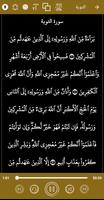 التوبة
سورة التوبة
بَرَاءَةٌ مِنَ اللَّهِ وَرَسُولِهِ إِلَى الَّذِينَ عَاهَدْتُمْ مِنَ
الْمُشْرِكِينَ ۞ فَسِيحُوا فِي الْأَرْضِ أَرْبَعَةَ أَشْهُرٍ
وَاعْلَمُوا أَنَّكُمْ غَيْرُ مُعْجِزِي اللَّهِ وَأَنَّ اللَّهَ مُخْزِي
الْكَافِرِينَ ۞ وَأَذَانٌ مِنَ اللَّهِ وَرَسُولِهِ إِلَى النَّاسِ
يَوْمَ الْحَجِّ الْأَكْبَرِ أَنَّ اللَّهَ بَرِيءٌ مِنَ الْمُشْرِكِينَ
وَرَسُولُهُ فَإِنْ تُبْتُمْ فَهُوَ خَيْرٌ لَكُمْ وَإِنْ تَوَلَّيْتُمْ
فَاعْلَمُوا أَنَّكُمْ غَيْرُ مُعْجِزِي اللَّهِ وَبَشِّرِ الَّذِينَ
كَفَرُوا بِعَذَابٍ أَلِيمٍ ۞ إِلَّا الَّذِينَ عَاهَدْتُمْ
1:01